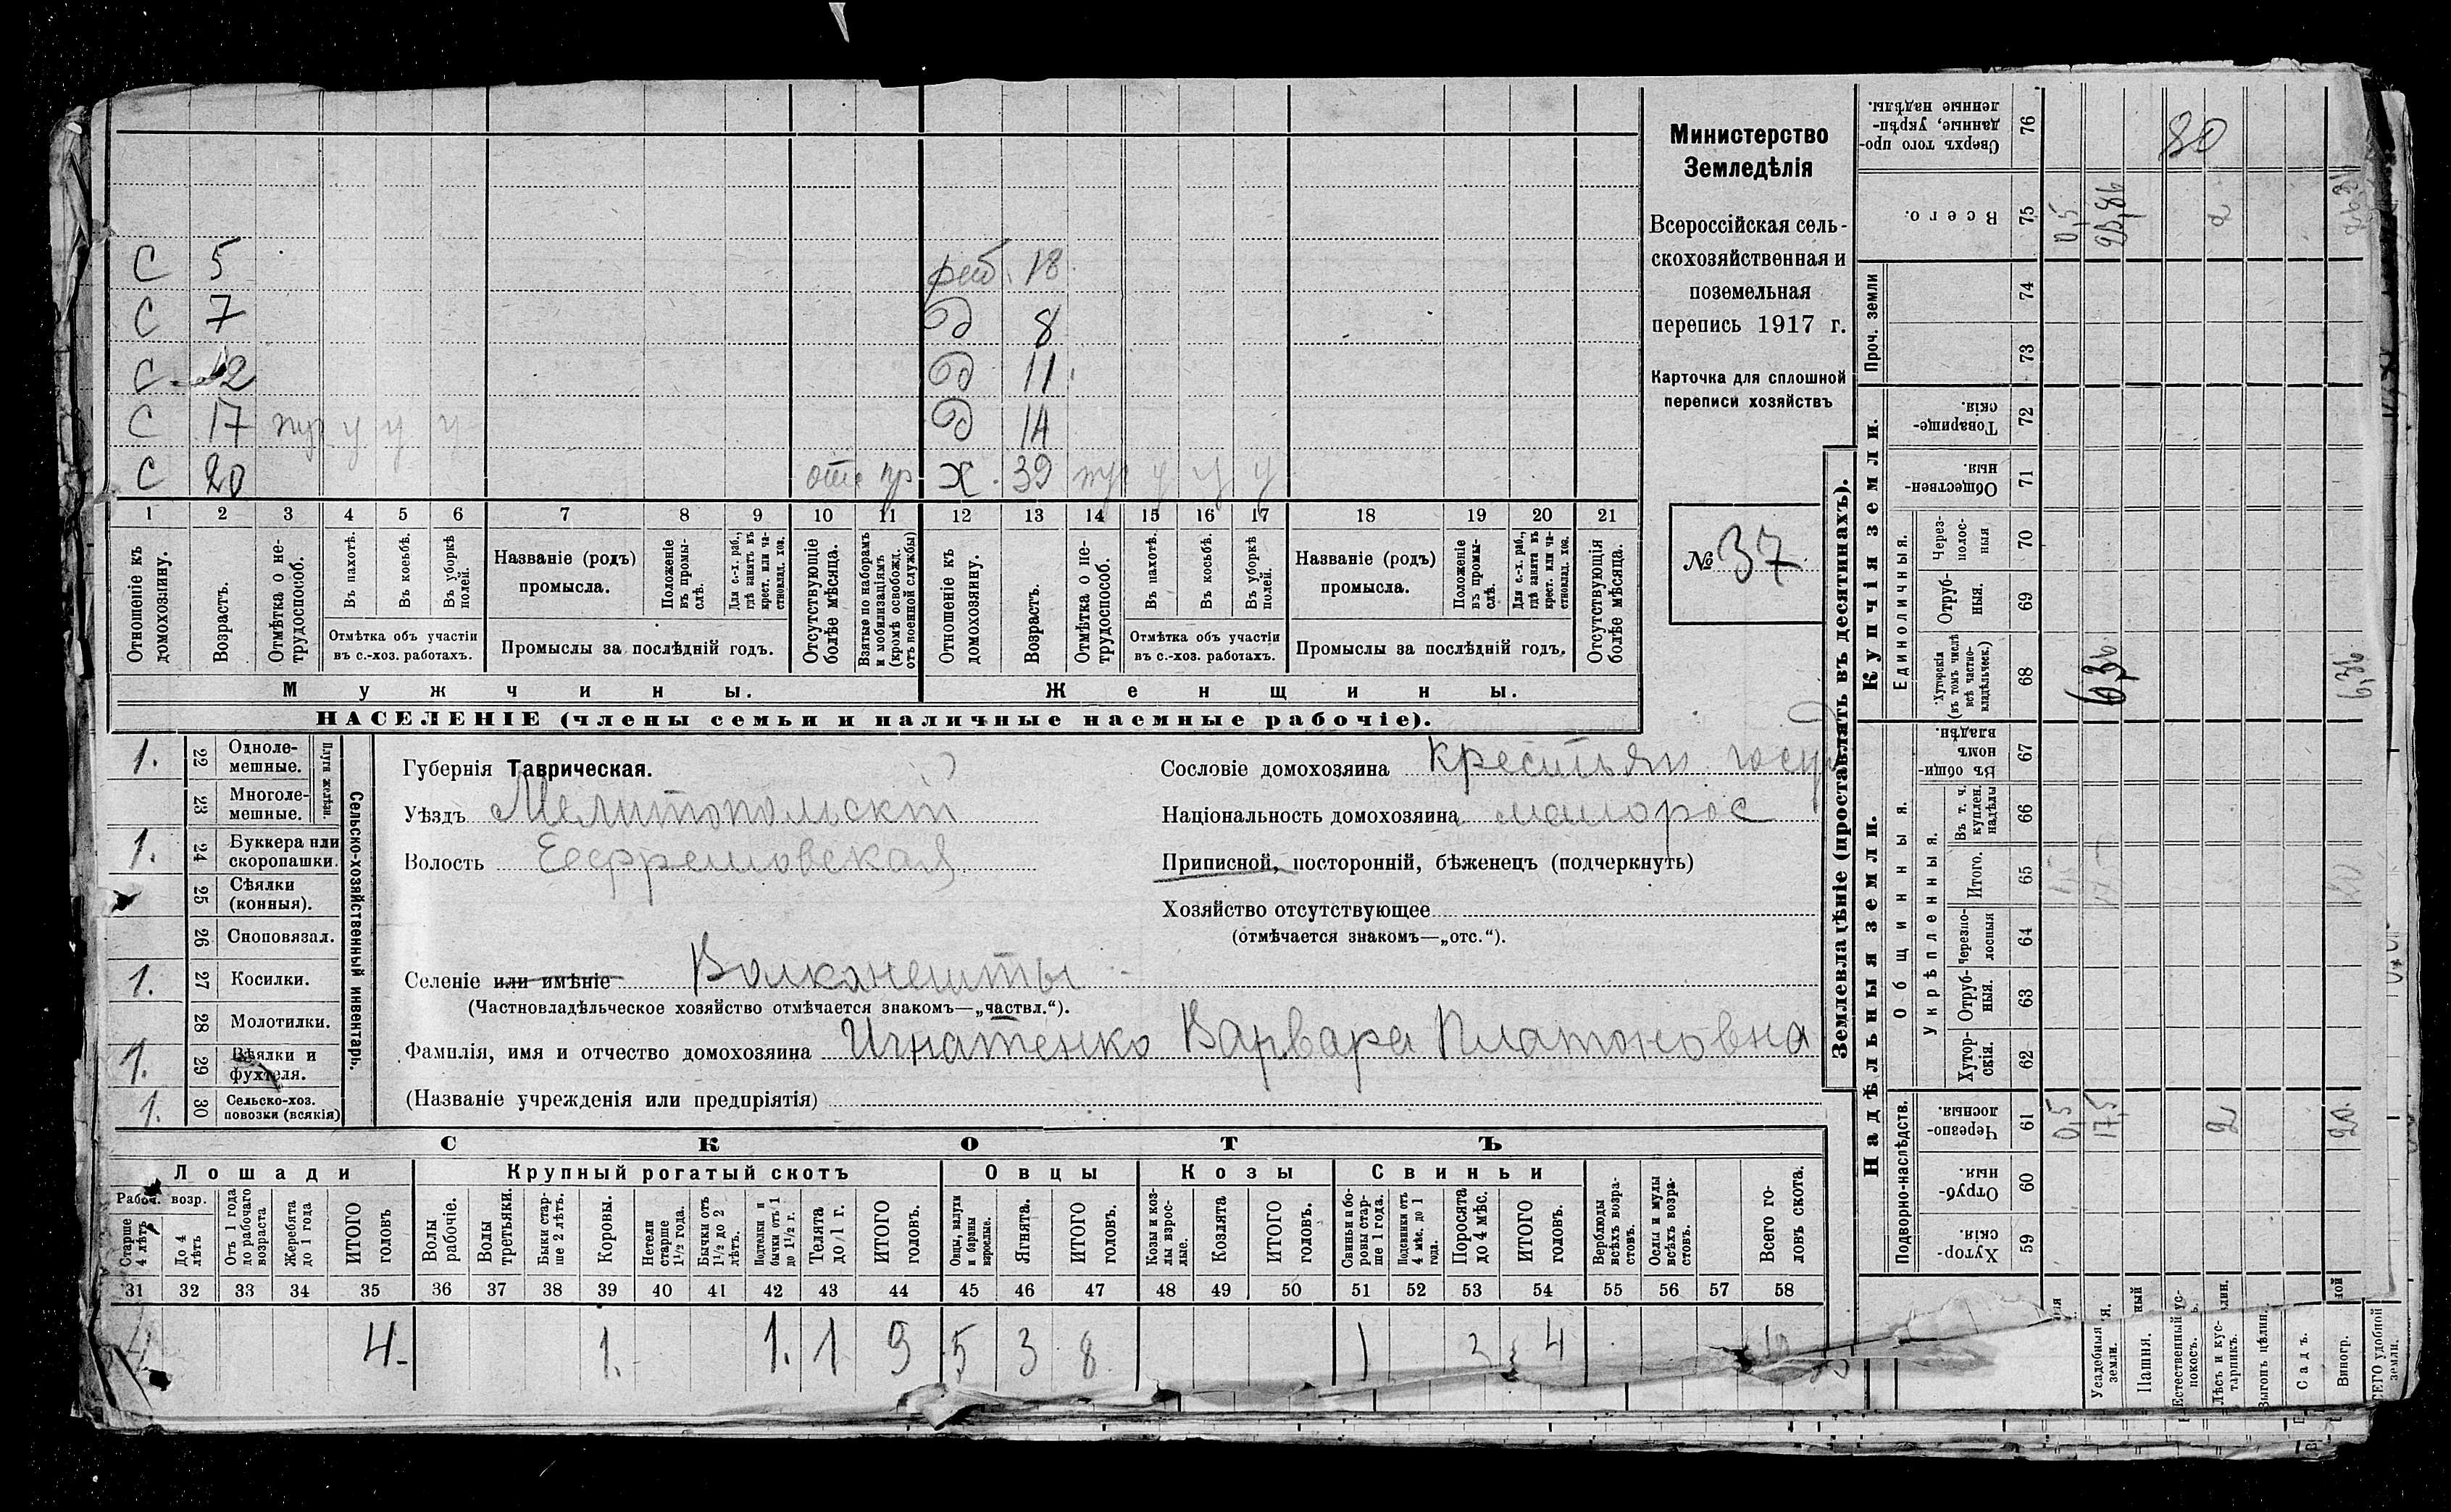 С 5 реб. 18
С 7 д 8
С 12 д 11
С 17 пу у у у д 14
С 20 отс пр х 39 пу у у у
1 2 3 4 5 6 7 8 9 10 11 12 13 14 15 16 17 18 19 20 21
Отношеніе къ домохозяину.
Возрастъ.
Отмѣтка о нетрудоспособ.
Въ пахотѣ.
Въ косьбѣ.
Въ уборкѣ полей.
Отмѣтка объ участіи въ с.-хоз. работахъ.
Названіе (родъ) промысла.
Положеніе въ промыслѣ.
Для с.-х. раб., гдѣ занятъ въ крест. или частновлад. хоз.
Промыслы за послѣдній годъ.
Отсутствующіе болѣе мѣсяца.
Взятые по наборамъ и мобилизаціямъ (кромѣ освобожд. отъ военной службы)
Отношеніе къ домохозяину.
Возрастъ.
Отмѣтка о нетрудоспособ.
Въ пахотѣ.
Въ косьбѣ.
Въ уборкѣ полей.
Отмѣтка объ участіи въ с.-хоз. работахъ.
Названіе (родъ) промысла.
Положеніе въ промыслѣ.
Для с.-х. раб., гдѣ занята въ крест. или частновлад. хоз.
Промыслы за послѣдній годъ.
Отсутствующія болѣе мѣсяца.
Мужчины. Женщины.
НАСЕЛЕНІЕ (члены семьи и наличные наемные рабочіе).
Министерство
Земледѣлія
Всероссійская сель-
скохозяйственная и
поземельная
перепись 1917 г.
Карточка для сплошной
переписи хозяйствъ
№ 37
1. 22 Одноле-мешные.
23 Многоле-мешные.
Плуги желѣзн.
1. 24 Буккера или скоропашки.
25 Сѣялки (конныя).
26 Сноповязал.
1. 27 Косилки.
28 Молотилки.
1. 29 Вѣялки и фухтеля.
1. 30 Сельско-хоз. повозки (всякія)
Сельско-хозяйственный инвентарь.
Губернія Таврическая.
Уѣздъ Мелитопольскій
Волость Ефремовская
Селеніе или имѣніе Волканешты
(Частновладѣльческое хозяйство отмѣчается знакомъ—„частвл.“).
Фамилія, имя и отчество домохозяина Игнатенко Варвара Платоновна
(Названіе учрежденія или предпріятія)
Сословіе домохозяина крестьян. госуд
Національность домохозяина малорос
Приписной, посторонній, бѣженецъ (подчеркнуть)
Хозяйство отсутствующее
(отмѣчается знакомъ—„отс.“).
СКОТЪ
Лошади Крупный рогатый скотъ Овцы Козы Свиньи
Рабоч. возр.
Старше 4 лѣтъ
До 4 лѣтъ
Отъ 1 года до рабочаго возраста
Жеребята до 1 года
ИТОГО головъ
Волы рабочіе.
Волы третьяки.
Быки старше 2 лѣтъ.
Коровы.
Нетели старше 1½ года.
Бычки отъ 1½ до 2 лѣтъ.
Подтелки и бычки отъ 1 до 1½ г.
Телята до 1 г.
ИТОГО головъ.
Овцы, валухи и бараны взрослые.
Ягнята.
ИТОГО головъ.
Козы и козлы взрослые.
Козлята
ИТОГО головъ.
Свиньи и боровы старше 1 года.
Подсвинки отъ 4 мѣс. до 1 года.
Поросята до 4 мѣс.
ИТОГО головъ.
Верблюды всѣхъ возрастовъ.
Ослы и мулы всѣхъ возрастовъ.
Всего головъ скота.
31 32 33 34 35 36 37 38 39 40 41 42 43 44 45 46 47 48 49 50 51 52 53 54 55 56 57 58
4 4. 1. 1. 1 3 5 3 8 1 3 4
Землевладѣніе (проставлять въ десятинахъ).
Купчія земли.
Надѣльныя земли.
Сверхъ того проданные, укрѣпленные надѣлы. 76 80
Всего. 75 0,5 23,86 2
Проч. земли 74 73
Товарищескія. 72
Общественныя. 71
Единоличныя.
Черезполосныя 70
Отрубныя. 69
Хуторскія (въ томъ числѣ всѣ частновладѣльческ.) 68 6,36 6,36.
Въ общинномъ владѣн. 67
Общинныя.
Укрѣпленныя.
Въ т. ч. куплен. надѣлы 66
Итого. 65
Черезполосныя 64
Отрубныя. 63
Хуторскія. 62
Подворно-наслѣдств.
Черезполосныя. 61 0,5 17,5 2 20.
Отрубныя. 60
Хуторскія. 59
Усадебныя земли.
Пашня.
Естественный покосъ.
Лѣсъ и кустарникъ.
Выгонъ цѣлин.
Садъ.
Виногр.